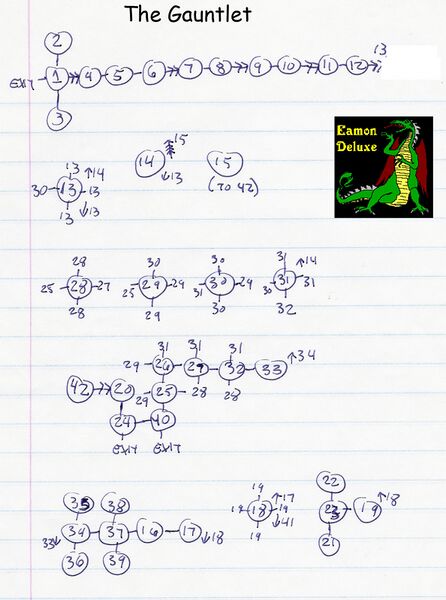 The Gauntlet
2
EXIT 1 4 5 6 7 8 9 10 11 12 13
3
Eamon
Deluxe
13 ↑14
30 13 13
13 ↓13
↑15
14
↓13
15
(TO 42)
28
25 28 27
28
30
25 29 29
29
30
31 30 29
30
31 ↑14
30 31 31
32
31 31 31
29 26 27 32 33 ↑34
42 20 29 25 28 28
24 40
EXIT EXIT
35 38
33↓ 34 37 16 17 ↓18
36 39
19 ↑17
19 18 19
19 ↓41
22
23 19 ↑18
21